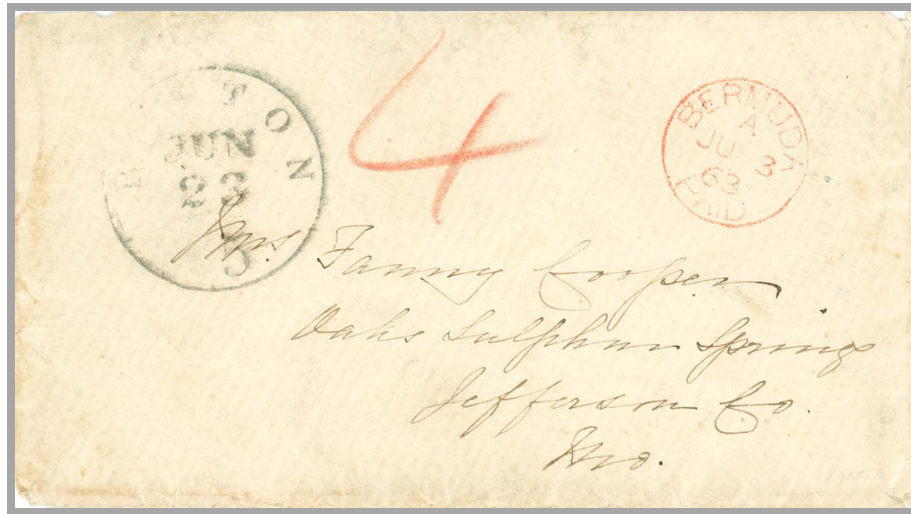 BOSTON
JUN
23
5
4
BERMUDA
A
JU 3
63
PAID
Mrs. Fanny Cooper
Oaks Sulphur Springs
Jefferson Co.
Mo.